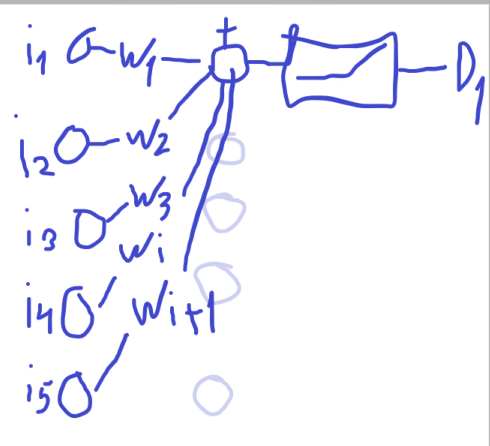 i1 w1 + D1
i2 w2
i3 w3
wi
i4 wi+1
i5